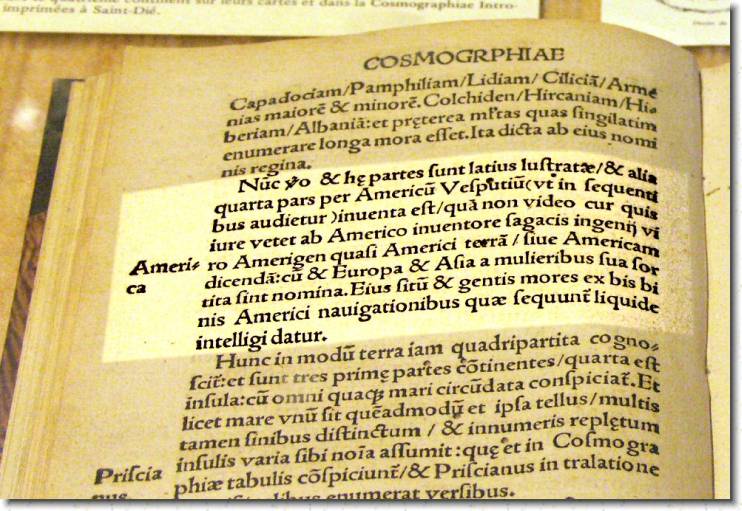 sur leurs cartes et dans la Cosmographiae Intro-
imprimées à Saint-Dié.
COSMOGRPHIAE
Capadociam/Pamphiliam/Lidiam/Ciliciã/Arme
nias maiorẽ & minorẽ. Colchiden/Hircaniam/Hi-
beriam/Albaniã: et pręterea mĺtas quas singilatim
enumerare longa mora esset. Ita dicta ab eius nomi
nis regina.
Nũc ỽo & hę partes sunt latius lustratæ/& alia
quarta pars per Americũ Vesputiũ (vt in sequenti
bus audietur) inuenta est/quã non video cur quis
iure vetet ab Americo inuentore sagacis ingenij vi
Ameri-
ca
ro Amerigen quasi Americi terrã/siue Americam
dicendã: cũ & Europa & Asia a mulieribus sua sor
tita sint nomina. Eius sitũ & gentis mores ex bis bi
nis Americi nauigationibus quæ sequunt̃ liquide
intelligi datur.
Hunc in modũ terra iam quadripartita cogno-
scit̃: et sunt tres primę partes cõtinentes/quarta est
insula: cũ omni quaqꝫ mari circũdata conspiciat̃. Et
licet mare vnũ sit quẽadmodũ et ipsa tellus/multis
tamen sinibus distinctum/& innumeris repletum
Priscia
nus.
insulis varia sibi noĩa assumit: quę et in Cosmogra
phiæ tabulis cõspiciunt̃/& Priscianus in tralatione
enumerat versibus.